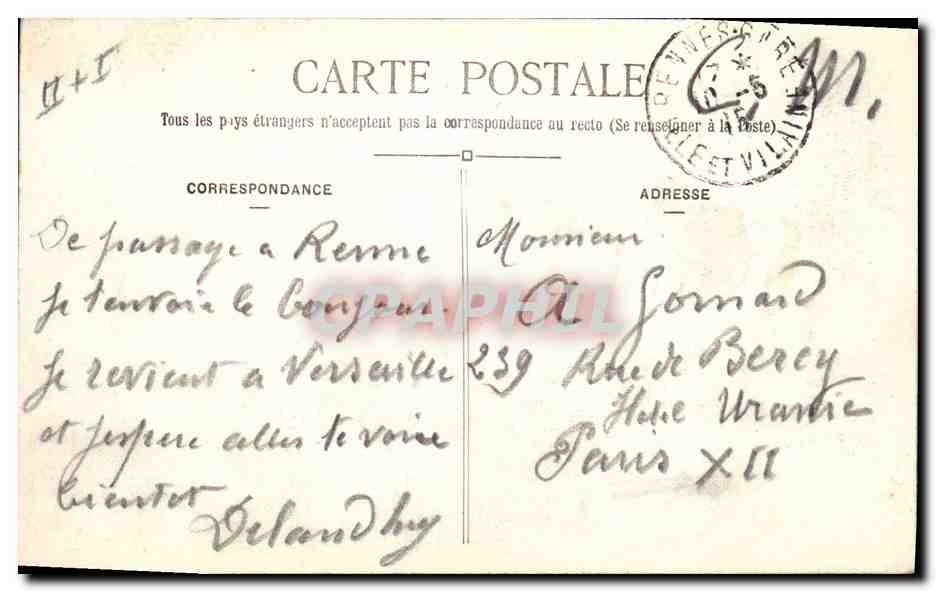 II + I
CARTE POSTALE
Tous les pays étrangers n'acceptent pas la correspondance au recto (Se renseigner à la Poste)
RENNES-GARE
ILLE ET VILAINE
CORRESPONDANCE
De passage a Renne
Je t'envoie le bonjour
Je revient a Versaille
et j'espere aller te voire
bientot
ADRESSE
Monsieur
A Gornard
239 Rue de Bercy
Hotel Uranie
Paris XII
CPAPHIL